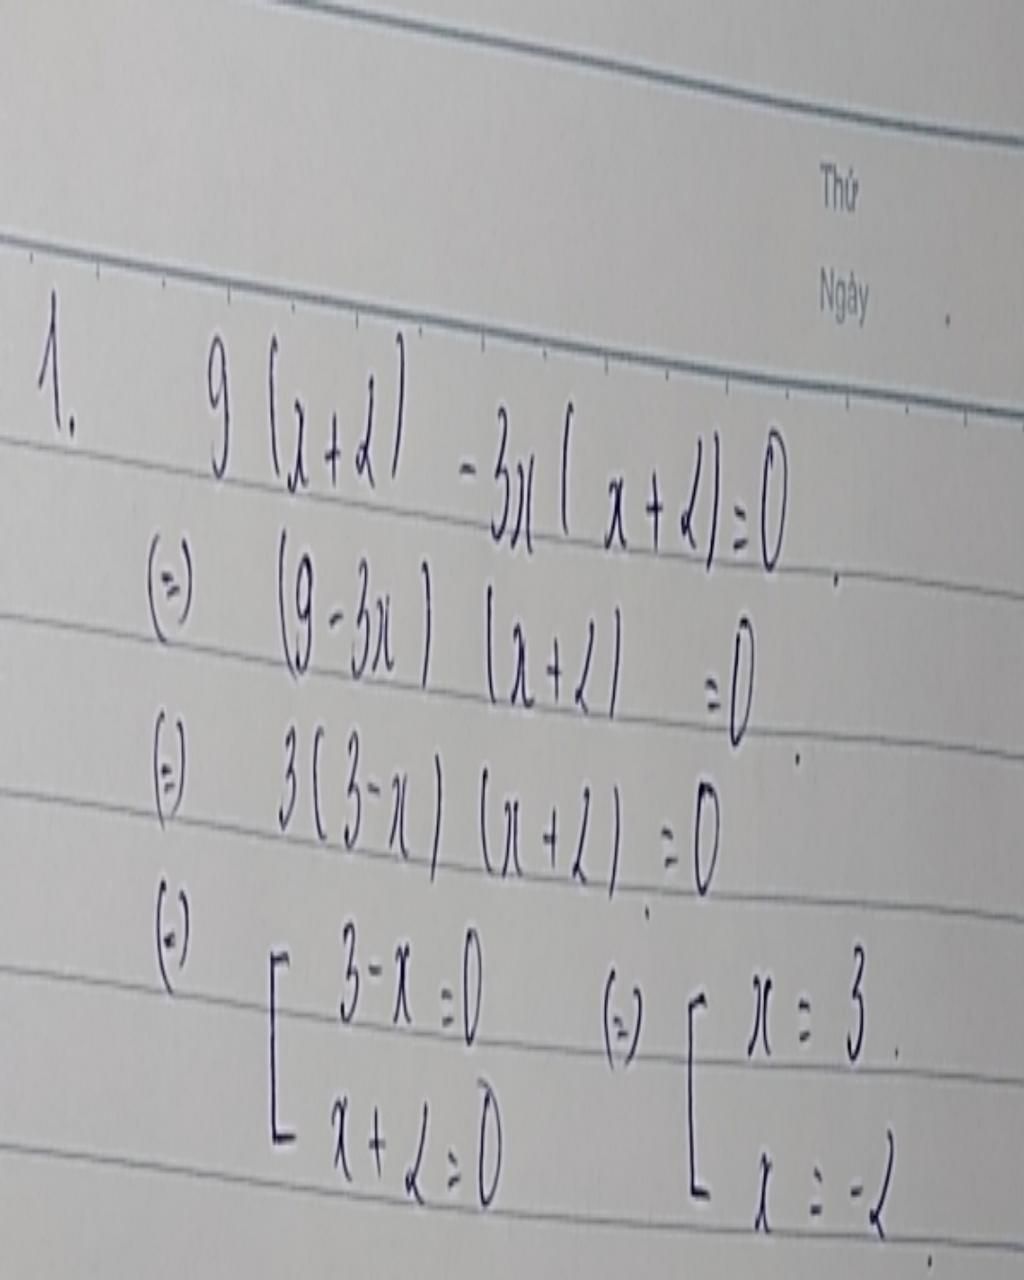 Thứ
Ngày
1. 9(x+2) -3x(x+2)=0
(=) (9-3x) (x+2) =0
(=) 3(3-x) (x+2) =0
(=) [ 3-x=0 (=) [ x = 3
x+2=0 x = -2